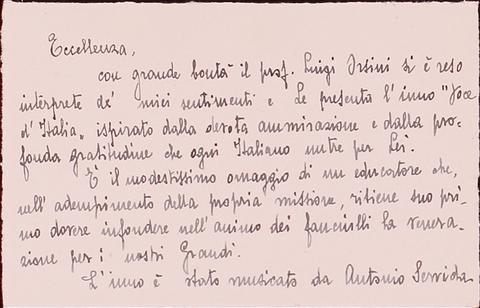 Eccellenza,
con grande bontà il prof. Luigi Orsini si è reso
interprete de' miei sentimenti e Le presenta l'inno "Voce
d'Italia„ ispirato dalla devota ammirazione e dalla pro-
fonda gratitudine che ogni Italiano nutre per Lei.
È il modestissimo omaggio di un educatore che,
nell'adempimento della propria missione, ritiene suo pri-
mo dovere infondere nell'animo dei fanciulli la venera-
zione per i nostri Grandi.
L'inno è stato musicato da Antonio